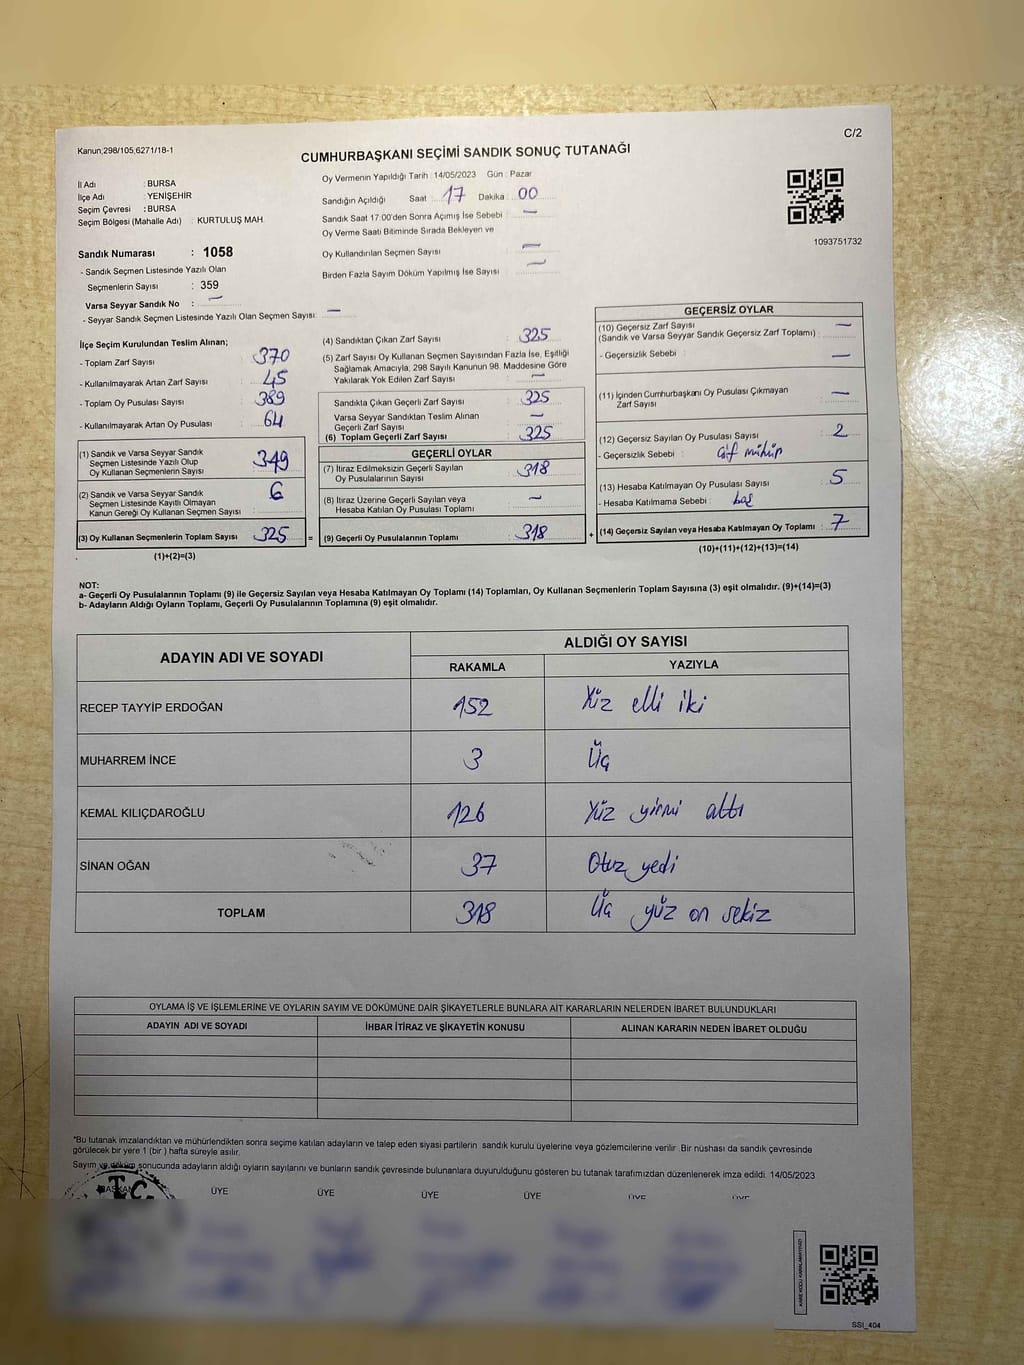 C/2
Kanun,298/105,6271/18-1
CUMHURBAŞKANI SEÇİMİ SANDIK SONUÇ TUTANAĞI
İl Adı : BURSA
İlçe Adı : YENİŞEHİR
Seçim Çevresi : BURSA
Seçim Bölgesi (Mahalle Adı) : KURTULUŞ MAH.
Oy Vermenin Yapıldığı Tarih : 14/05/2023 Gün : Pazar
Sandığın Açıldığı Saat : 17 Dakika : 00
Sandık Saat 17.00'den Sonra Açımış İse Sebebi : —
Oy Verme Saati Bitiminde Sırada Bekleyen ve
Oy Kullandırılan Seçmen Sayısı : —
Birden Fazla Sayım Döküm Yapılmış İse Sayısı : —
1093751732
Sandık Numarası : 1058
- Sandık Seçmen Listesinde Yazılı Olan
Seçmenlerin Sayısı : 359
Varsa Seyyar Sandık No : —
- Seyyar Sandık Seçmen Listesinde Yazılı Olan Seçmen Sayısı: —
İlçe Seçim Kurulundan Teslim Alınan;
- Toplam Zarf Sayısı : 370
- Kullanılmayarak Artan Zarf Sayısı : 45
- Toplam Oy Pusulası Sayısı : 389
- Kullanılmayarak Artan Oy Pusulası : 64
(1) Sandık ve Varsa Seyyar Sandık
Seçmen Listesinde Yazılı Olup
Oy Kullanan Seçmenlerin Sayısı : 349
(2) Sandık ve Varsa Seyyar Sandık
Seçmen Listesinde Kayıtlı Olmayan
Kanun Gereği Oy Kullanan Seçmen Sayısı : 6
(3) Oy Kullanan Seçmenlerin Toplam Sayısı : 325
(1)+(2)=(3)
(4) Sandıktan Çıkan Zarf Sayısı : 325
(5) Zarf Sayısı Oy Kullanan Seçmen Sayısından Fazla İse, Eşitliği
Sağlamak Amacıyla, 298 Sayılı Kanunun 98. Maddesine Göre
Yakılarak Yok Edilen Zarf Sayısı : —
Sandıkta Çıkan Geçerli Zarf Sayısı : 325
Varsa Seyyar Sandıktan Teslim Alınan
Geçerli Zarf Sayısı : —
(6) Toplam Geçerli Zarf Sayısı : 325
GEÇERLİ OYLAR
(7) İtiraz Edilmeksizin Geçerli Sayılan
Oy Pusulalarının Sayısı : 318
(8) İtiraz Üzerine Geçerli Sayılan veya
Hesaba Katılan Oy Pusulası Toplamı : —
(9) Geçerli Oy Pusulalarının Toplamı : 318
GEÇERSİZ OYLAR
(10) Geçersiz Zarf Sayısı : —
(Sandık ve Varsa Seyyar Sandık Geçersiz Zarf Toplamı)
- Geçersizlik Sebebi : —
(11) İçinden Cumhurbaşkanı Oy Pusulası Çıkmayan
Zarf Sayısı : —
(12) Geçersiz Sayılan Oy Pusulası Sayısı : 2
- Geçersizlik Sebebi : Çif mühür
(13) Hesaba Katılmayan Oy Pusulası Sayısı : 5
- Hesaba Katılmama Sebebi : boş
(14) Geçersiz Sayılan veya Hesaba Katılmayan Oy Toplamı : 7
(10)+(11)+(12)+(13)=(14)
NOT:
a- Geçerli Oy Pusulalarının Toplamı (9) ile Geçersiz Sayılan veya Hesaba Katılmayan Oy Toplamı (14) Toplamları, Oy Kullanan Seçmenlerin Toplam Sayısına (3) eşit olmalıdır. (9)+(14)=(3)
b- Adayların Aldığı Oyların Toplamı, Geçerli Oy Pusulalarının Toplamına (9) eşit olmalıdır.
ADAYIN ADI VE SOYADI
ALDIĞI OY SAYISI
RAKAMLA YAZIYLA
RECEP TAYYİP ERDOĞAN 152 Yüz elli iki
MUHARREM İNCE 3 Üç
KEMAL KILIÇDAROĞLU 126 Yüz yirmi altı
SİNAN OĞAN 37 Otuz yedi
TOPLAM 318 Üç yüz on sekiz
OYLAMA İŞ VE İŞLEMLERİNE VE OYLARIN SAYIM VE DÖKÜMÜNE DAİR ŞİKAYETLERLE BUNLARA AİT KARARLARIN NELERDEN İBARET BULUNDUKLARI
ADAYIN ADI VE SOYADI İHBAR İTİRAZ VE ŞİKAYETİN KONUSU ALINAN KARARIN NEDEN İBARET OLDUĞU
*Bu tutanak imzalandıktan ve mühürlendikten sonra seçime katılan adayların ve talep eden siyasi partilerin sandık kurulu üyelerine veya gözlemcilerine verilir. Bir nüshası da sandık çevresinde
görülecek bir yere 1 (bir ) hafta süreyle asılır.
Sayım ve döküm sonucunda adayların aldığı oyların sayılarını ve bunların sandık çevresinde bulunanlara duyurulduğunu gösteren bu tutanak tarafımızdan düzenlenerek imza edildi. 14/05/2023
BAŞKAN ÜYE ÜYE ÜYE ÜYE ÜYE ÜYE
T.C.
KARE KODU KARALAMAYINIZ!
SSI_404